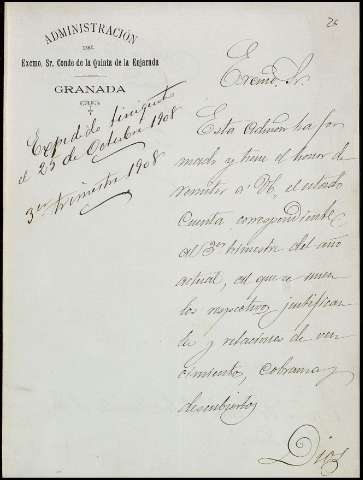 26
ADMINISTRACIÓN
DEL
Excmo. Sr. Conde de la Quinta de la Enjarada
GRANADA
Expedido finiquito
el 25 de Octubre 1908
3er trimestre 1908
Excmo. Sr.
Esta admon ha for
mado y tiene el honor de
remitir a V.E. el estado
cuenta correspondiente
al 3er trimestre del año
actual, al que se unen
los respectivos justifican
tes y relaciones de ven
cimiento, cobranza y
descubiertos
Dios